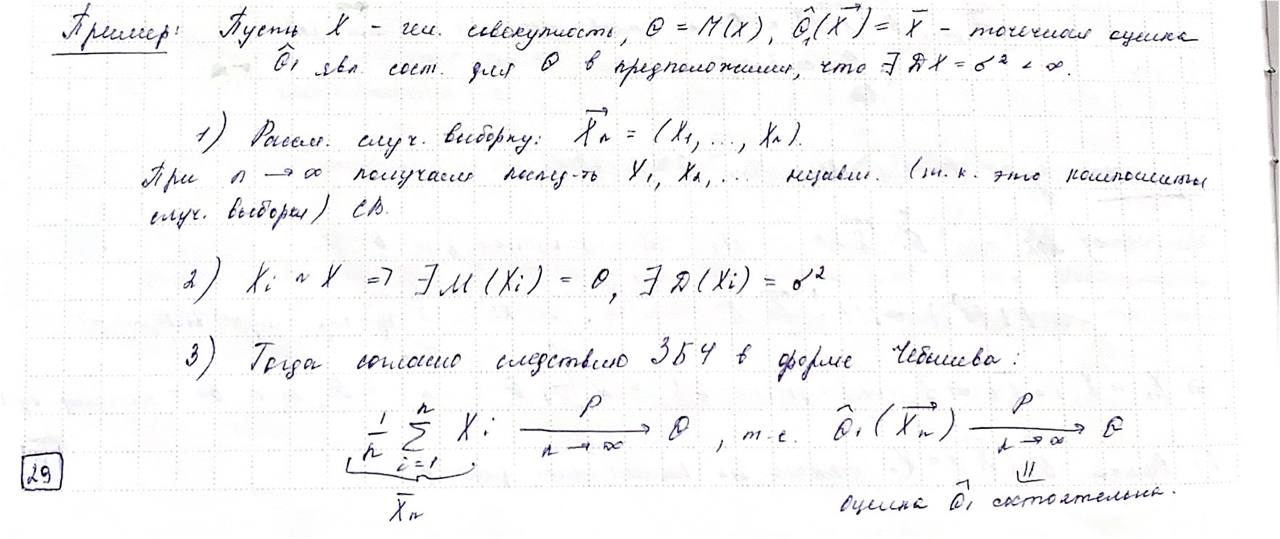 Пример: Пусть X - ген. совокупность, θ = M(X), θ̂₁(X⃗) = X̄ - точечная оценка
θ̂₁ явл. сост. для θ в предположении, что ∃ DX = σ² < ∞.
1) Рассм. случ. выборку: X⃗ₙ = (X₁, ..., Xₙ).
При n → ∞ получаем послед-ть X₁, X₂, ... независ. (т.к. это компоненты
случ. выборки) СВ.
2) Xᵢ ~ X => ∃ M(Xᵢ) = θ, ∃ D(Xᵢ) = σ²
3) Тогда согласно следствию ЗБЧ в форме Чебышева:
1/n ∑ᵢ₌₁ⁿ Xᵢ —P, n→∞→ θ, т.е. θ̂₁(X⃗ₙ) —P, n→∞→ θ
29
X̄ₙ
⇓
оценка θ̂₁ состоятельна.